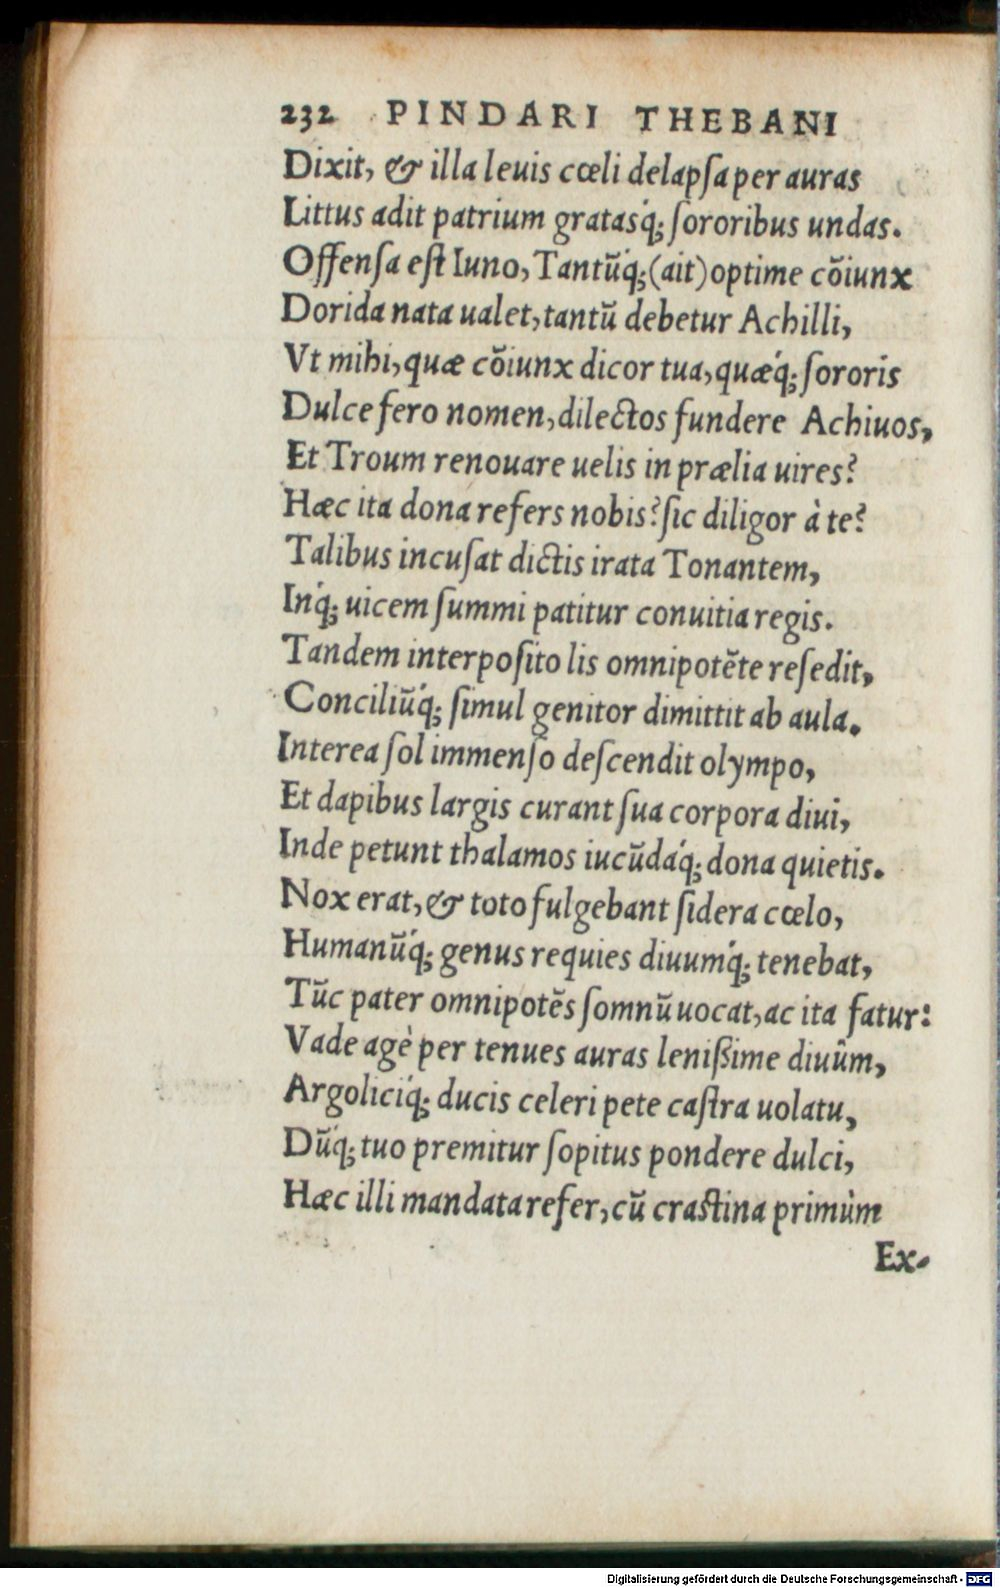 232 PINDARI THEBANI
Dixit, & illa leuis cœli delapſa per auras
Littus adit patrium gratasq́; ſororibus undas.
Offenſa eſt Iuno, Tantūq́; (ait) optime cōiunx
Dorida nata ualet, tantū debetur Achilli,
Vt mihi, quæ cōiunx dicor tua, quæq́; ſororis
Dulce fero nomen, dilectos fundere Achiuos,
Et Troum renouare uelis in prælia uires?
Hæc ita dona refers nobis? ſic diligor à te?
Talibus incuſat dictis irata Tonantem,
Inq́; uicem ſummi patitur conuitia regis.
Tandem interpoſito lis omnipotēte reſedit,
Conciliūq́; ſimul genitor dimittit ab aula.
Interea ſol immenſo deſcendit olympo,
Et dapibus largis curant ſua corpora diui,
Inde petunt thalamos iucūdaq́; dona quietis.
Nox erat, & toto fulgebant ſidera cœlo,
Humanūq́; genus requies diuumq́; tenebat,
Tūc pater omnipotēs ſomnū uocat, ac ita fatur:
Vade agè per tenues auras leniſsime diuûm,
Argoliciq́; ducis celeri pete caſtra uolatu,
Dūq́; tuo premitur ſopitus pondere dulci,
Hæc illi mandata refer, cū craſtina primùm
Ex-
Digitalisierung gefördert durch die Deutsche Forschungsgemeinschaft - DFG